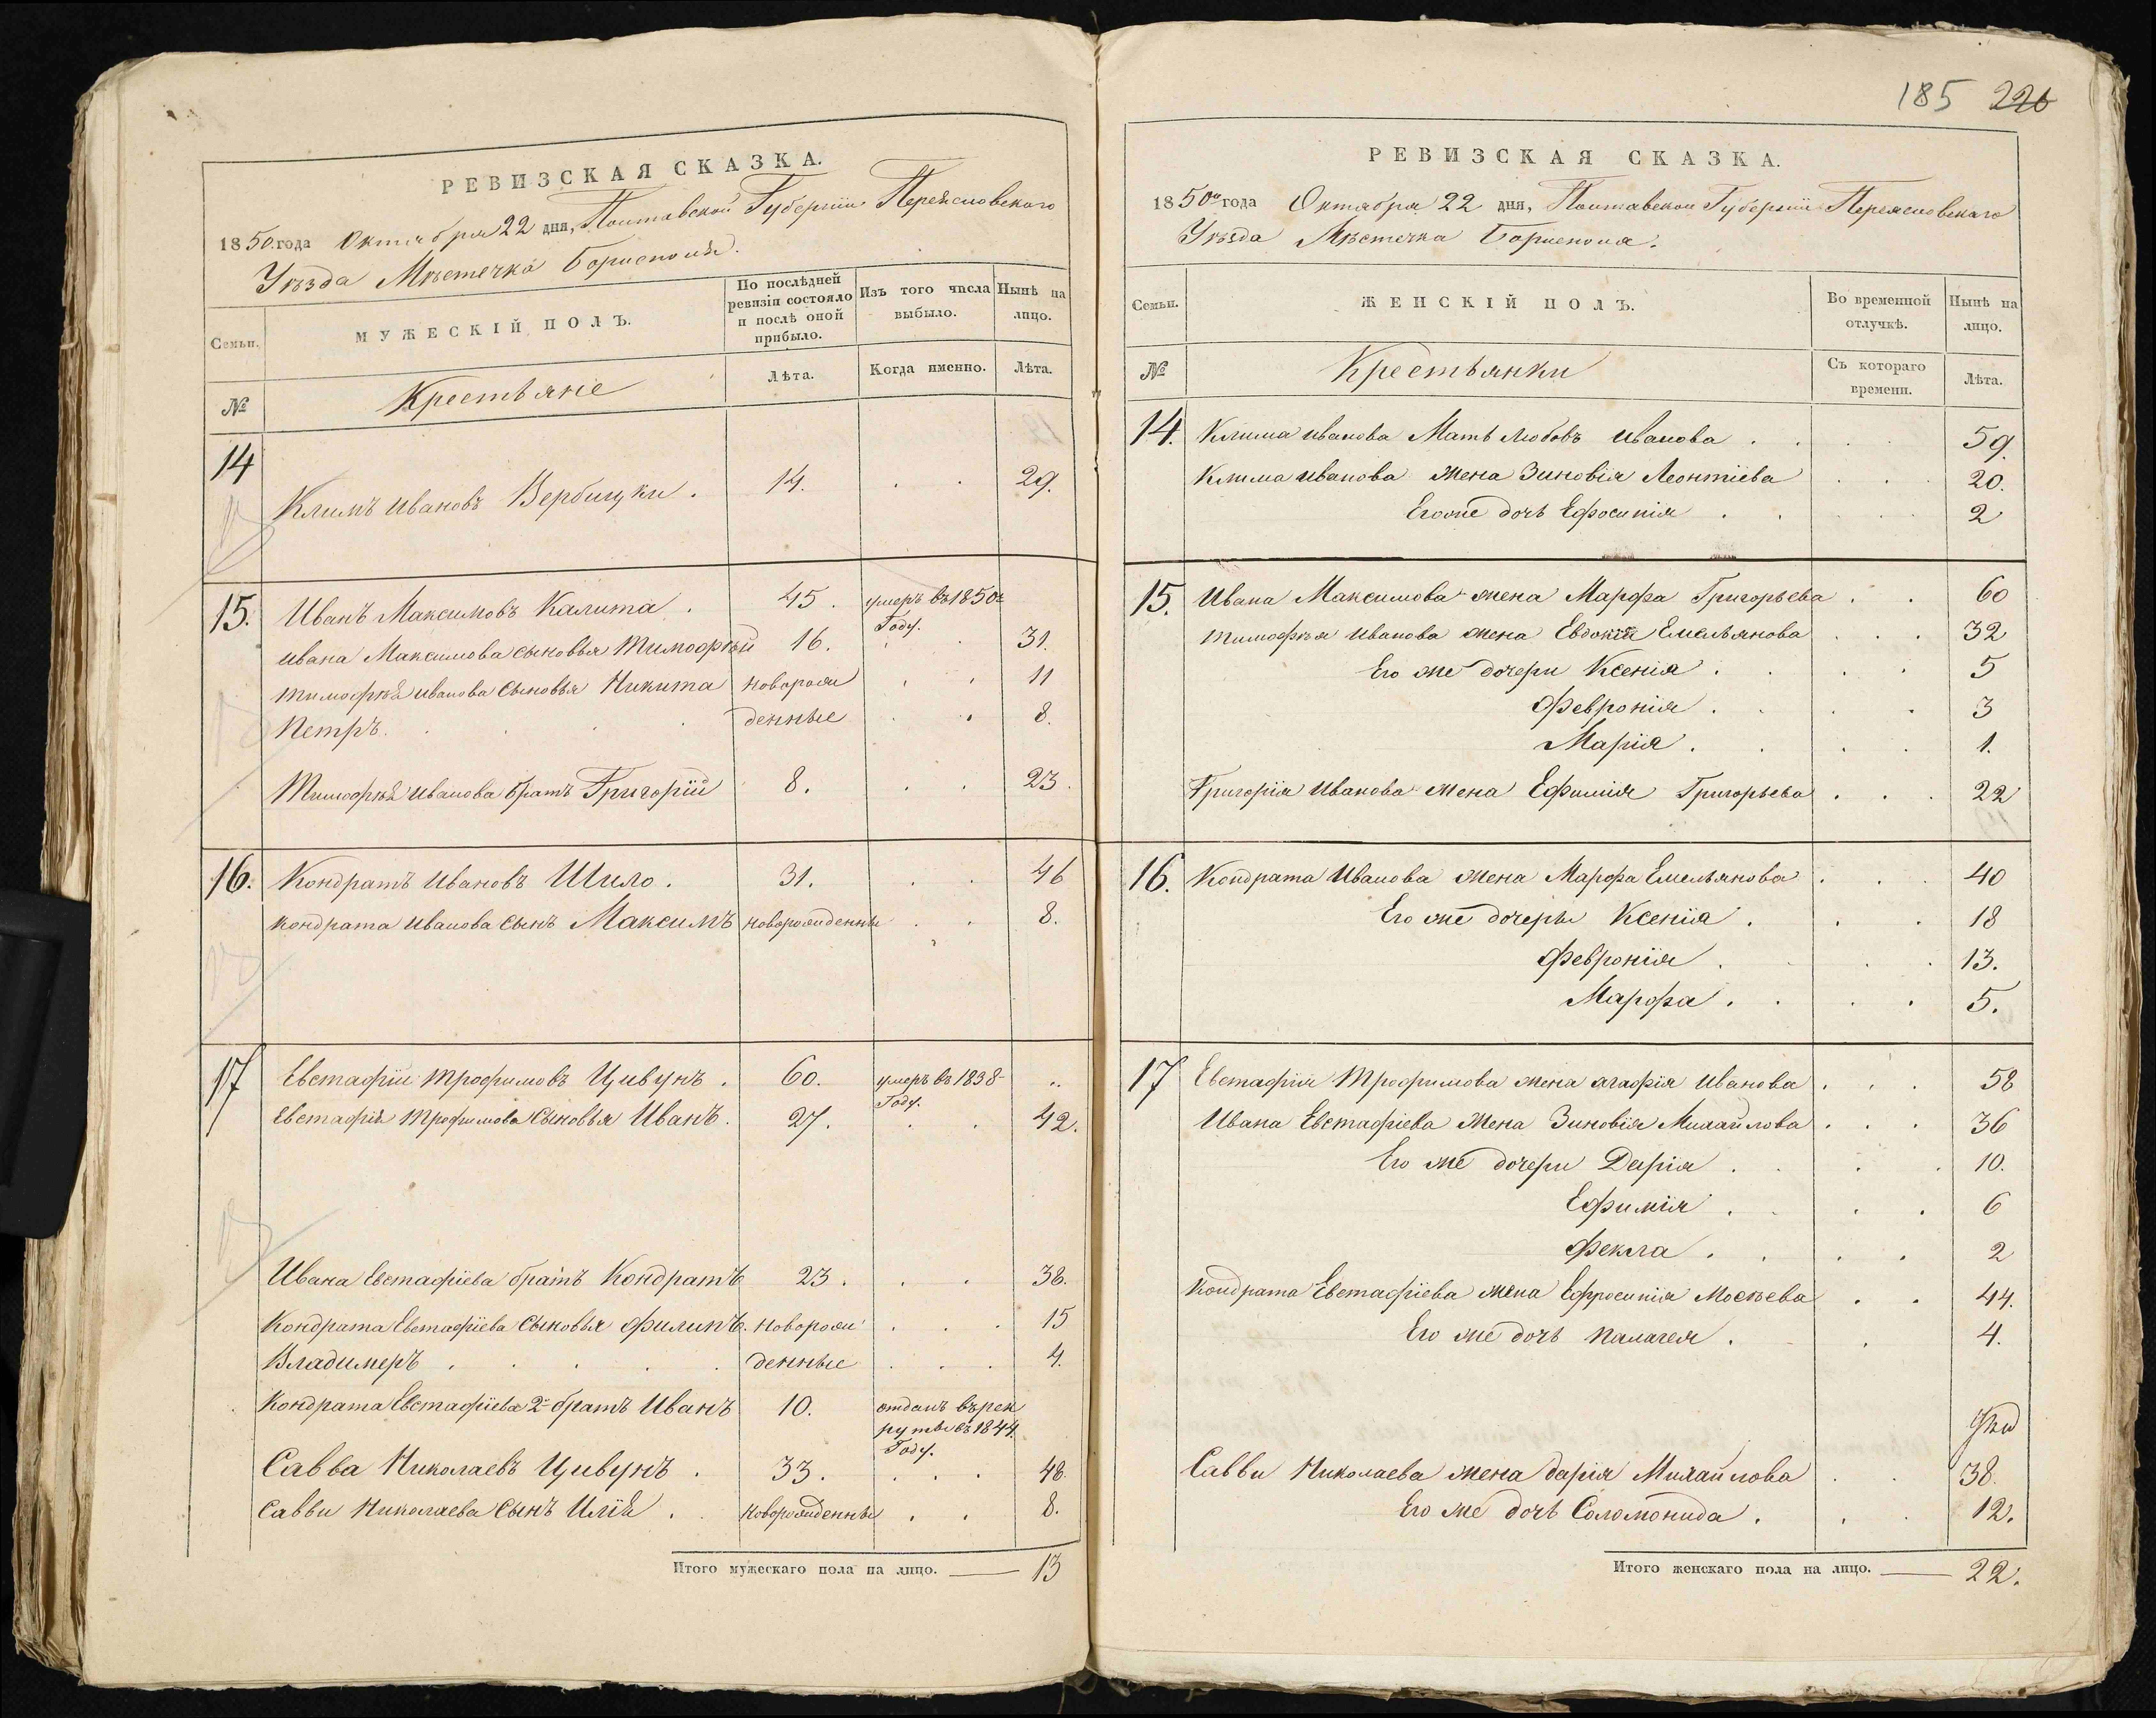 185 226
РЕВИЗСКАЯ СКАЗКА.
1850 года Октября 22 дня, Полтавской Губернии Переясловского
Уѣзда Мѣстечка Борисполя.
Семьи.
МУЖЕСКІЙ ПОЛЪ.
По послѣдней ревизіи состояло и послѣ оной прибыло.
Изъ того числа выбыло.
Нынѣ на лицо.
№
Крестьяне
Лѣта.
Когда именно.
Лѣта.
14 Климъ Ивановъ Вербицки. 14. 29.
15. Иванъ Максимовъ Калита. 45. умеръ въ 1850м Году.
Ивана Максимова сыновья Тимофѣй 16. 31.
Тимофѣя Иванова Сыновья Никита новорож 11
Петръ. денные 8.
Тимофѣя Иванова братъ Григорій 8. 23.
16. Кондратъ Ивановъ Шило. 31. 46
Кондрата Иванова Сынъ Максимъ новорожденны 8.
17 Евстафіи Трофимовъ Цивунъ. 60. умеръ въ 1838 Году. ..
Евстафія Трофимова Сыновья Иванъ. 27. 42.
Ивана Евстафіева братъ Кондратъ 23. 38.
Кондрата Евстафіева Сыновья Филипъ. новорож 15
Владимеръ денные 4.
Кондрата Евстафіева 2й братъ Иванъ 10. отданъ върек
руты въ 1844.
Году.
Савва Николаевъ Цивунъ. 33. 48.
Саввы Николаева Сынъ Илія. новорожденны 8.
Итого мужескаго пола на лицо. — 13
РЕВИЗСКАЯ СКАЗКА.
1850го года Октября 22 дня, Полтавской Губерніи Переясловскаго
Уѣзда Мѣстечка Борисполя.
Семьи.
ЖЕНСКІЙ ПОЛЪ.
Во временной отлучкѣ.
Нынѣ на лицо.
№
Крестьянки
Съ котораго времени.
Лѣта.
14. Клима Иванова Мать Любовъ Иванова 59.
Клима Иванова жена Зиновія Леонтіева 20.
Егоже дочь Ефосинія 2
15. Ивана Максимова жена Марфа Григорьева 60
Тимофѣя Иванова жена Евдокія Емельянова 32
Его же дочери Ксенія 5
Февронія 3
Марія 1.
Григорія Иванова жена Ефимія Григорьева 22
16. Кондрата Иванова жена Марфа Емельянова 40
Его же дочеры Ксенія 18
Февронія 13.
Марфа 5.
17 Евстафія Трофимова жена Агафія Иванова 58
Ивана Евстафіева жена Зиновія Михайлова 36
Его же дочери Дарія 10.
Ефимія 6
Фекла 2
Кондрата Евстафіева жена Ефросинія Мосѣева 44.
Его же дочь Палагея 4.
Саввы Николаева жена Дарія Михайлова 38.
Его же дочь Соломонида 12.
Итого женскаго пола на лицо. — 22.